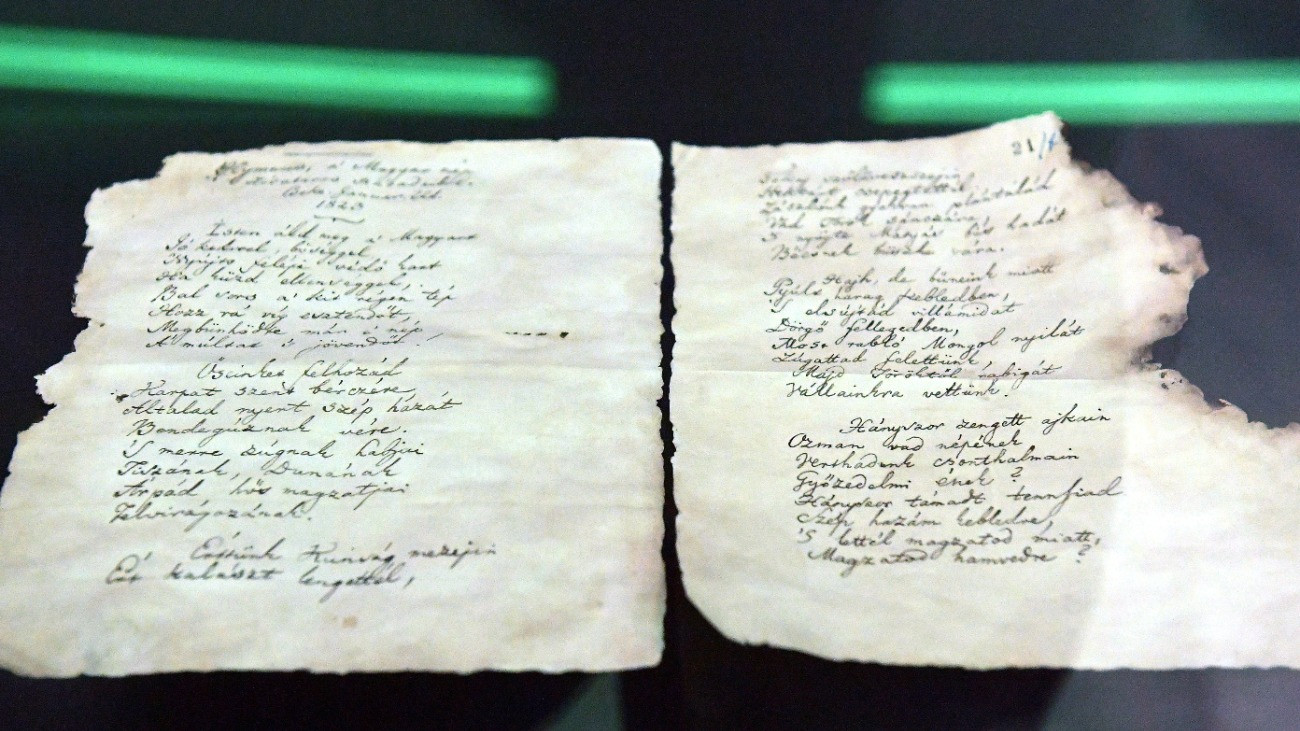 Hymnus, a' Magyar nép
zivataros századaiból.
Januar
1823
Isten áldd meg a' Magyart
Jó kedvvel, bőséggel,
Nyújts feléje védő kart
Ha küzd ellenséggel;
Bal sors a' kit régen tép
Hozz rá víg esztendőt,
Megbünhödte már e' nép
A' múltat 's jövendőt!
Őseinket felhozád
Kárpát szent bérczére,
Általad nyert szép hazát
Bendegúznak vére.
'S merre zúgnak habjai
Tiszának, Dunának
Árpád hős magzatjai
Felvirágozának.
Értünk Kunság mezein
Ért kalászt lengettél,
21/
Tokaj szőlővesszein
Nektárt csepegtettél.
Zászlónk gyakran plántálád
Vad Török sánczára,
S nyögte Mátyás bús hadát
Bécsnek büszke vára.
Hajh, de bűneink miatt
Gyúlt harag kebledben,
S elsújtád villámidat
Dörgő fellegedben,
Most rabló Mongol nyilát
Zúgattad felettünk,
Majd Töröktől rabigát
Vállainkra vettünk.
Hányszor zengett ajkain
Ozman vad népének
Vert hadunk csonthalmain
Győzedelmi ének?
Hányszor támadt tennfiad
Szép hazám kebledre,
'S lettél magzatod miatt,
Magzatod hamvedre?